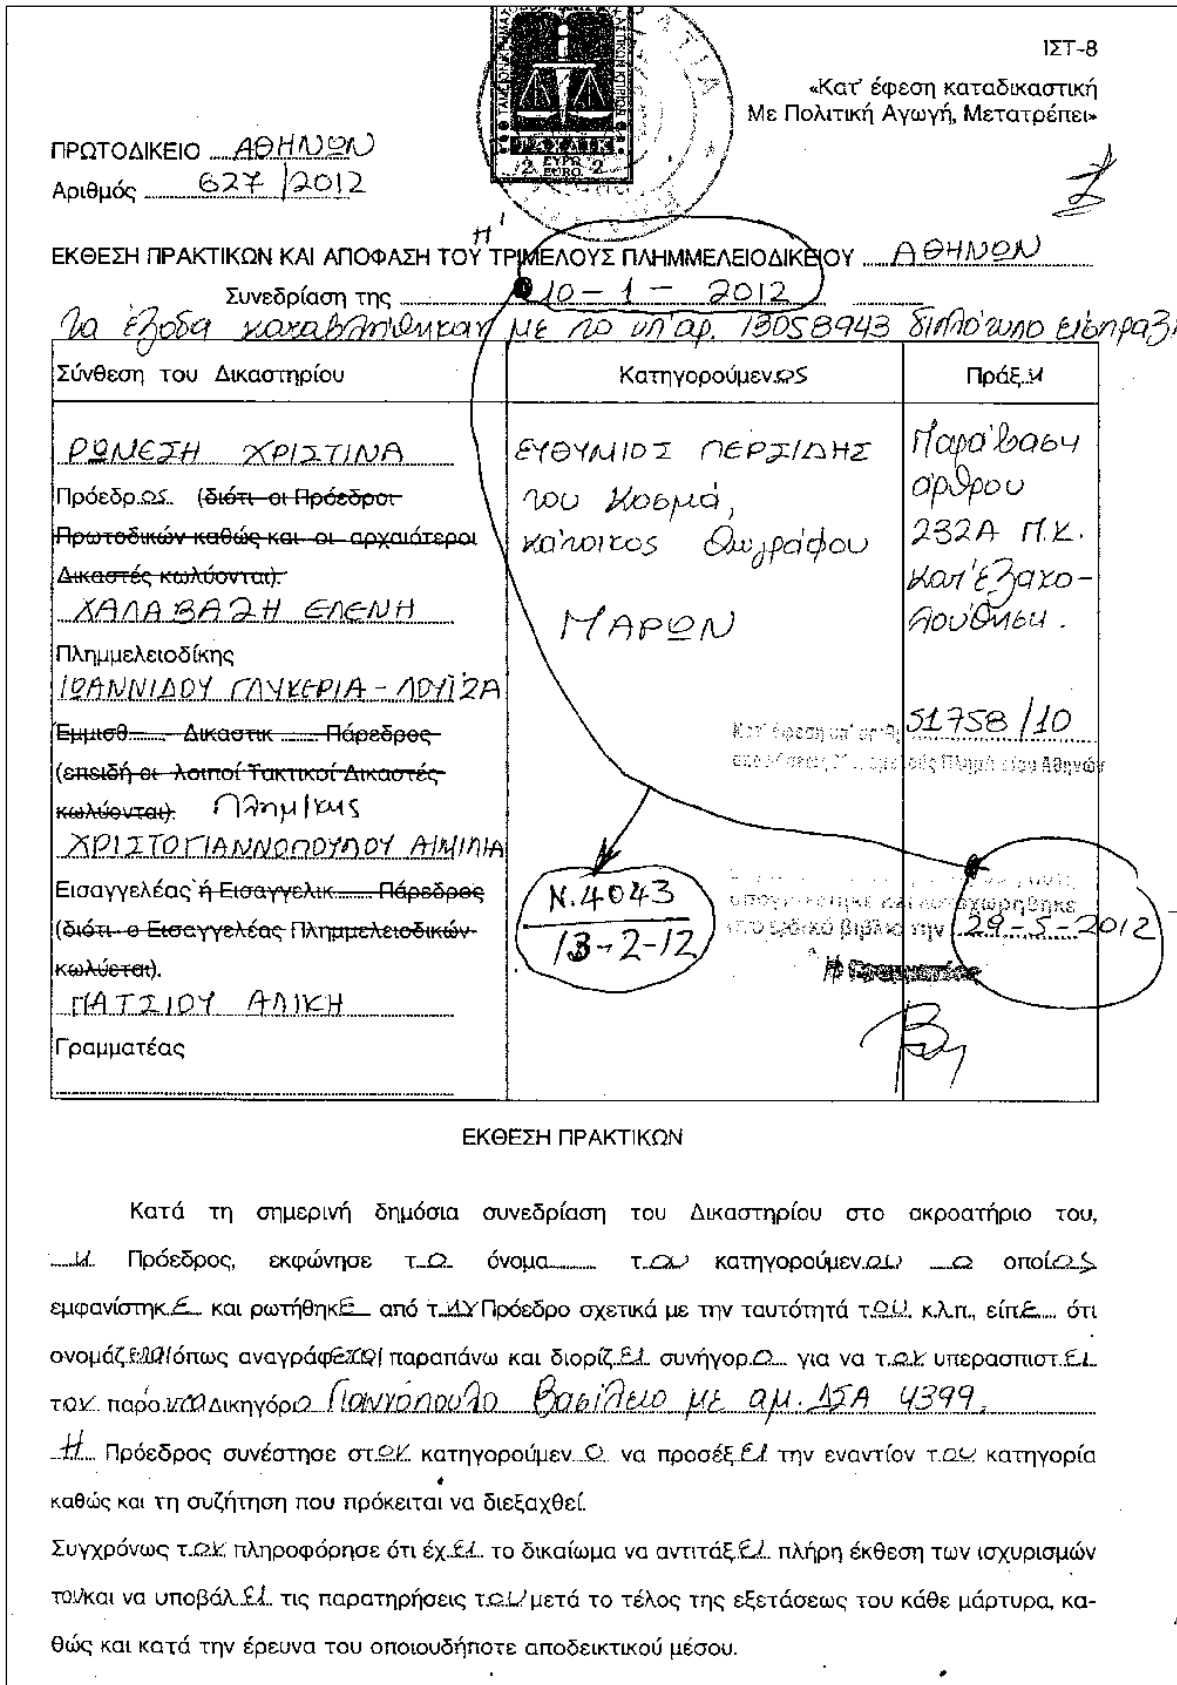 ΙΣΤ-8
«Κατ' έφεση καταδικαστική
Με Πολιτική Αγωγή, Μετατρέπει»
ΤΙΑ
2 ΕΥΡΩ EURO 2
ΠΡΩΤΟΔΙΚΕΙΟ ΑΘΗΝΩΝ
Αριθμός 627/2012
Η'
ΕΚΘΕΣΗ ΠΡΑΚΤΙΚΩΝ ΚΑΙ ΑΠΟΦΑΣΗ ΤΟΥ ΤΡΙΜΕΛΟΥΣ ΠΛΗΜΜΕΛΕΙΟΔΙΚΕΙΟΥ ΑΘΗΝΩΝ
Συνεδρίαση της 10-1-2012
Τα έξοδα καταβλήθηκαν με το υπ' αρ. 13058943 διπλότυπο είσπραξ
Σύνθεση του Δικαστηρίου
Κατηγορούμενος
Πράξη
ΡΩΜΕΣΗ ΧΡΙΣΤΙΝΑ
Πρόεδρος (διότι οι Πρόεδροι
Πρωτοδικών καθώς και οι αρχαιότεροι
Δικαστές κωλύονται).
ΧΑΛΑΒΑΖΗ ΕΛΕΝΗ
Πλημμελειοδίκης
ΙΩΑΝΝΙΔΟΥ ΓΛΥΚΕΡΙΑ-ΛΟΥΙΖΑ
Έμμισθ Δικαστικ Πάρεδρος
(επειδή οι λοιποί Τακτικοί Δικαστές
κωλύονται). Πλημ/κης
ΧΡΙΣΤΟΓΙΑΝΝΟΠΟΥΛΟΥ ΑΙΜΙΛΙΑ
Εισαγγελέας ή Εισαγγελικ Πάρεδρος
(διότι ο Εισαγγελέας Πλημμελειοδικών
κωλύεται).
ΠΑΤΣΙΟΥ ΑΛΙΚΗ
Γραμματέας
ΕΥΘΥΜΙΟΣ ΠΕΡΣΙΔΗΣ
του Κοσμά,
κάτοικος Ζωγράφου
ΠΑΡΩΝ
Παράβαση
άρθρου
232Α Π.Κ.
κατ' εξακο-
λούθηση.
Κατ' έφεση υπ' αριθ. 51758/10
Πλημ/είου Αθηνών
Ν.4043
13-2-12
καταχωρήθηκε
στο ειδικό βιβλίο την 29-5-2012
Η Γραμματέας
ΕΚΘΕΣΗ ΠΡΑΚΤΙΚΩΝ
Κατά τη σημερινή δημόσια συνεδρίαση του Δικαστηρίου στο ακροατήριο του,
η Πρόεδρος, εκφώνησε το όνομα του κατηγορούμενου ο οποίος
εμφανίστηκε και ρωτήθηκε από την Πρόεδρο σχετικά με την ταυτότητά του κ.λ.π., είπε ότι
ονομάζεται όπως αναγράφεται παραπάνω και διορίζει συνήγορο για να τον υπερασπιστεί
τον παρόντα Δικηγόρο Γιαννόπουλο Βασίλειο με αμ. ΔΣΑ 4399.
Η Πρόεδρος συνέστησε στον κατηγορούμενο να προσέξει την εναντίον του κατηγορία
καθώς και τη συζήτηση που πρόκειται να διεξαχθεί.
Συγχρόνως τον πληροφόρησε ότι έχει το δικαίωμα να αντιτάξει πλήρη έκθεση των ισχυρισμών
του και να υποβάλει τις παρατηρήσεις του μετά το τέλος της εξετάσεως του κάθε μάρτυρα, κα-
θώς και κατά την έρευνα του οποιουδήποτε αποδεικτικού μέσου.